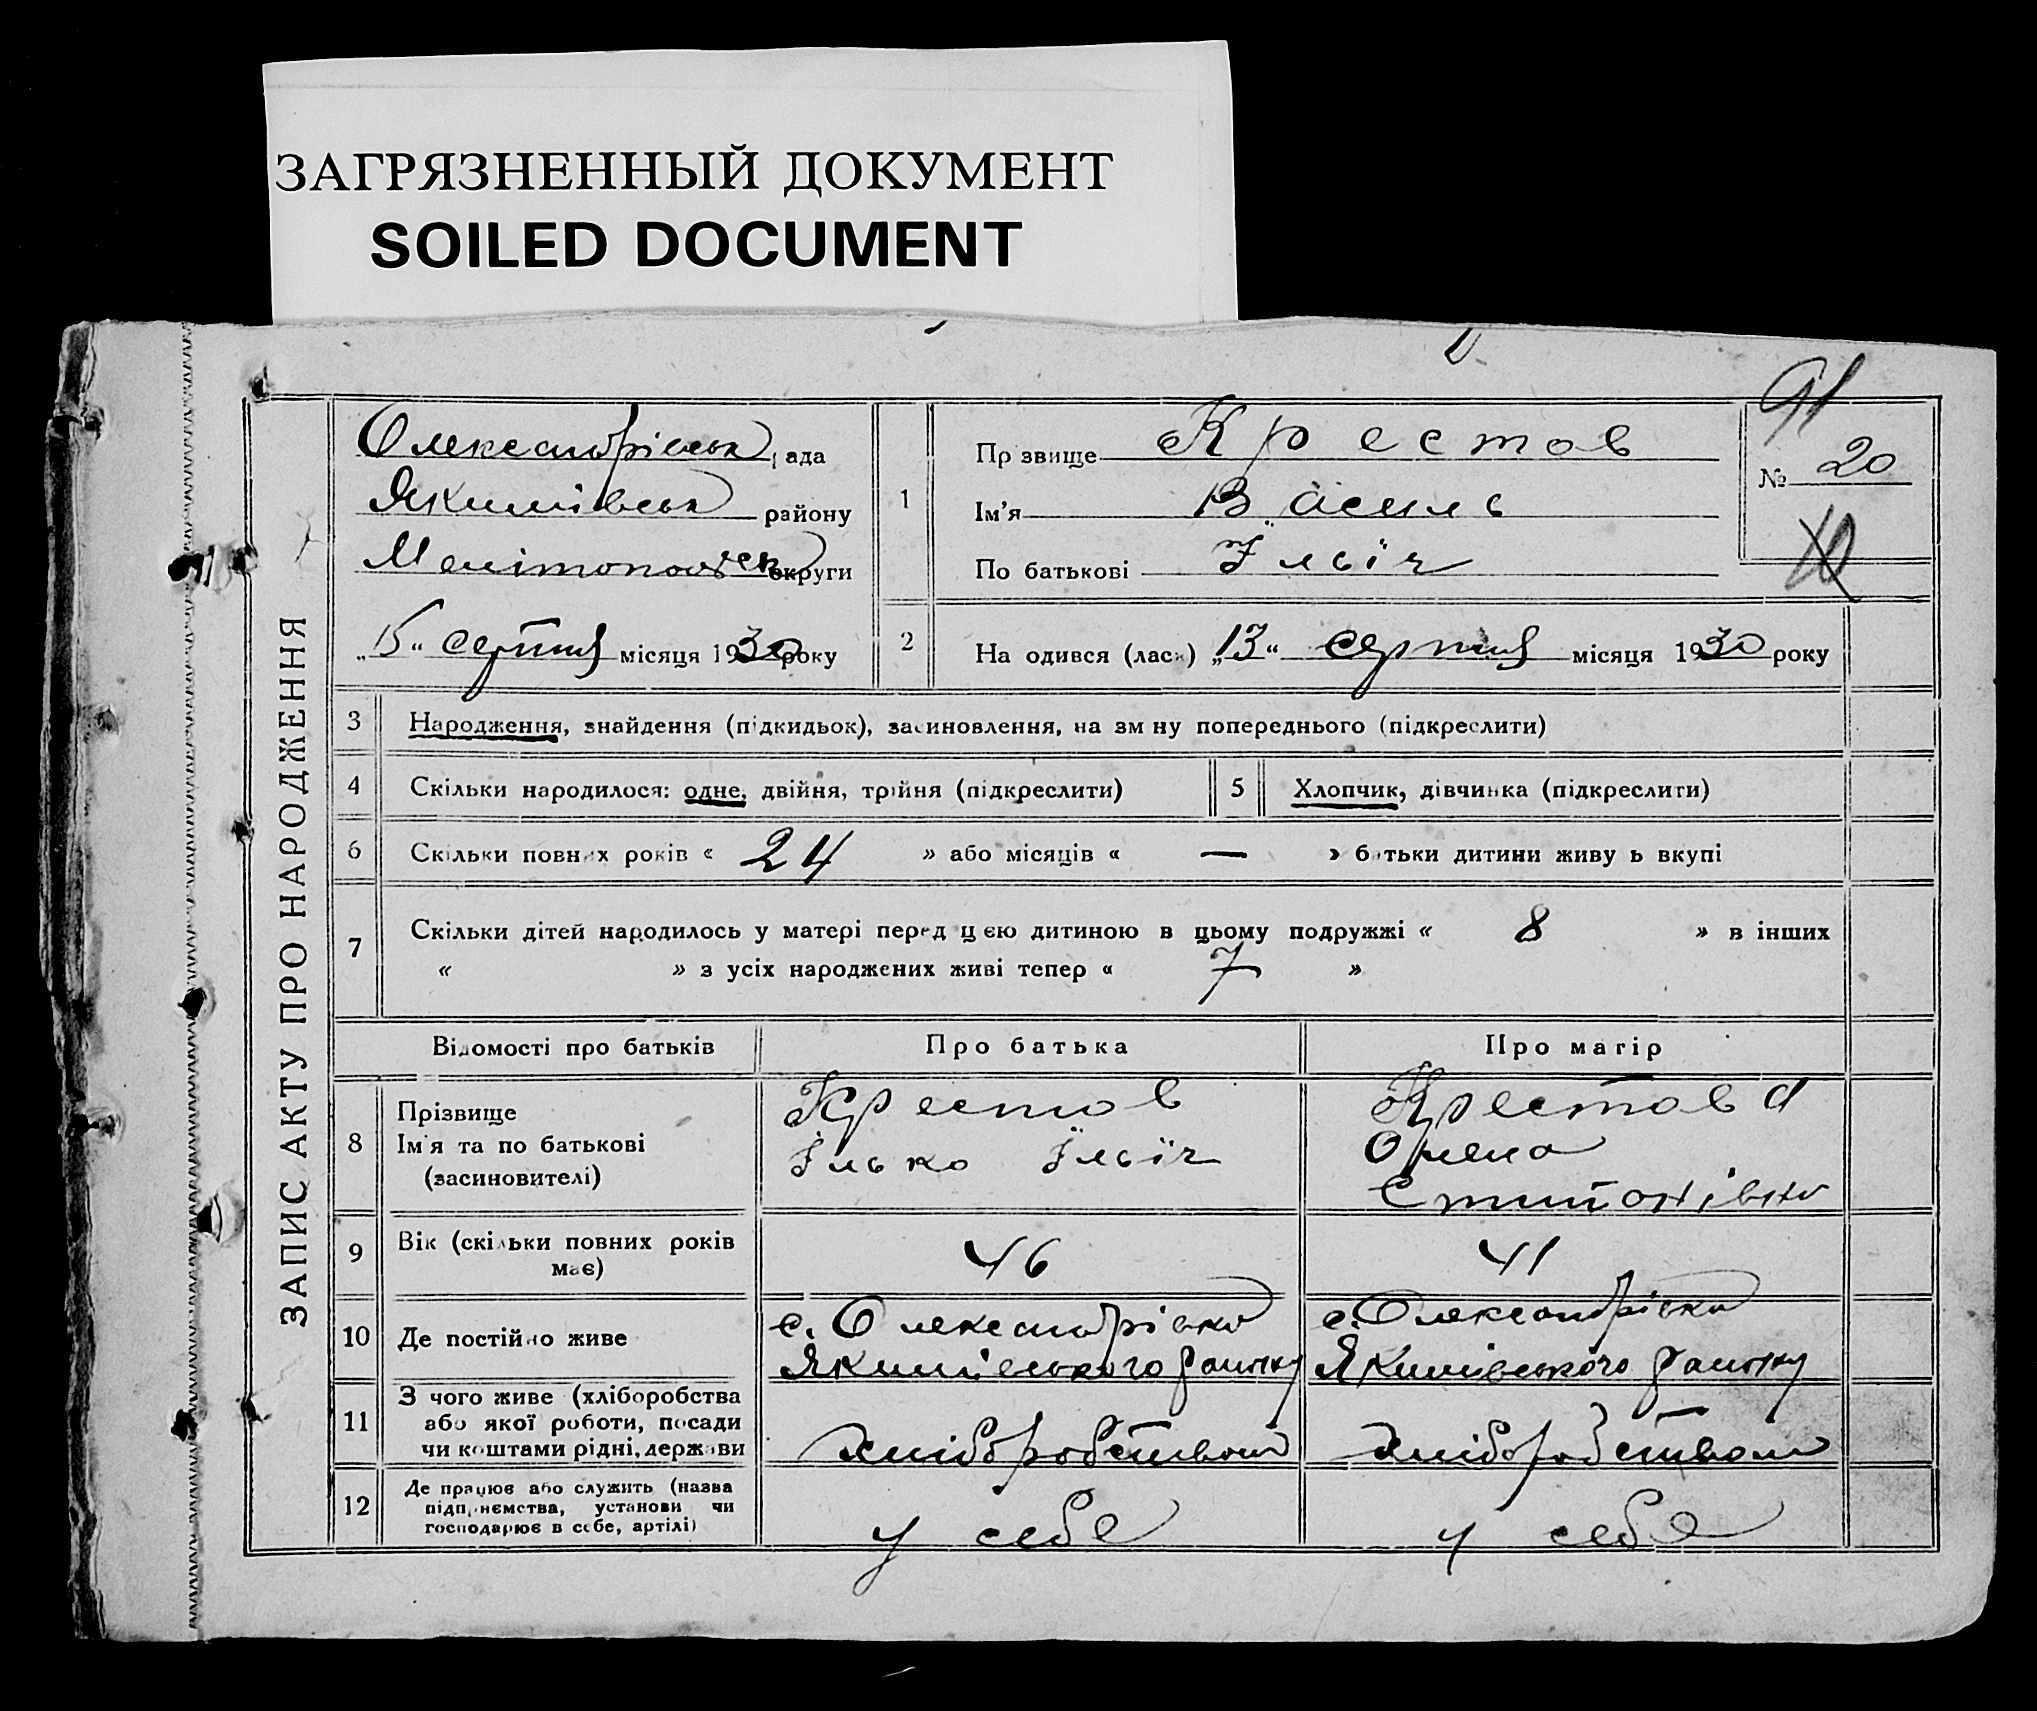 ЗАГРЯЗНЕННЫЙ ДОКУМЕНТ
SOILED DOCUMENT
91
ЗАПИС АКТУ ПРО НАРОДЖЕННЯ
Олександрівськ рада
Якимівськ району
Мелітопольськ округи
„15“ серпня місяця 1930 року
1
Прізвище Крестов
Ім'я Василь
По батькові Ільїч
№ 20
2
Народився (лась) „13“ серпня місяця 1930 року
3 Народження, знайдення (підкидьок), засиновлення, на зміну попереднього (підкреслити)
4 Скільки народилося: одне, двійня, трійня (підкреслити)
5 Хлопчик, дівчинка (підкреслити)
6 Скільки повних років « 24 » або місяців « — » батьки дитини живуть вкупі
7 Скільки дітей народилось у матері перед цією дитиною в цьому подружжі « 8 » в інших
« » з усіх народжених живі тепер « 7 »
Відомості про батьків Про батька Про матір
8 Прізвище
Ім'я та по батькові
(засиновителі)
Крестов
Ілько Ільїч
Крестова
Олена
9 Вік (скільки повних років
має)
46
41
10 Де постійно живе
с. Олександрівка
Якимівського району
с. Олександрівка
Якимівського району
11 З чого живе (хліборобства
або якої роботи, посади
чи коштами рідні, держави
хліборобством
хліборобством
12 Де працює або служить (назва
підприємства, установи чи
господарює в себе, артілі)
у себе
у себе